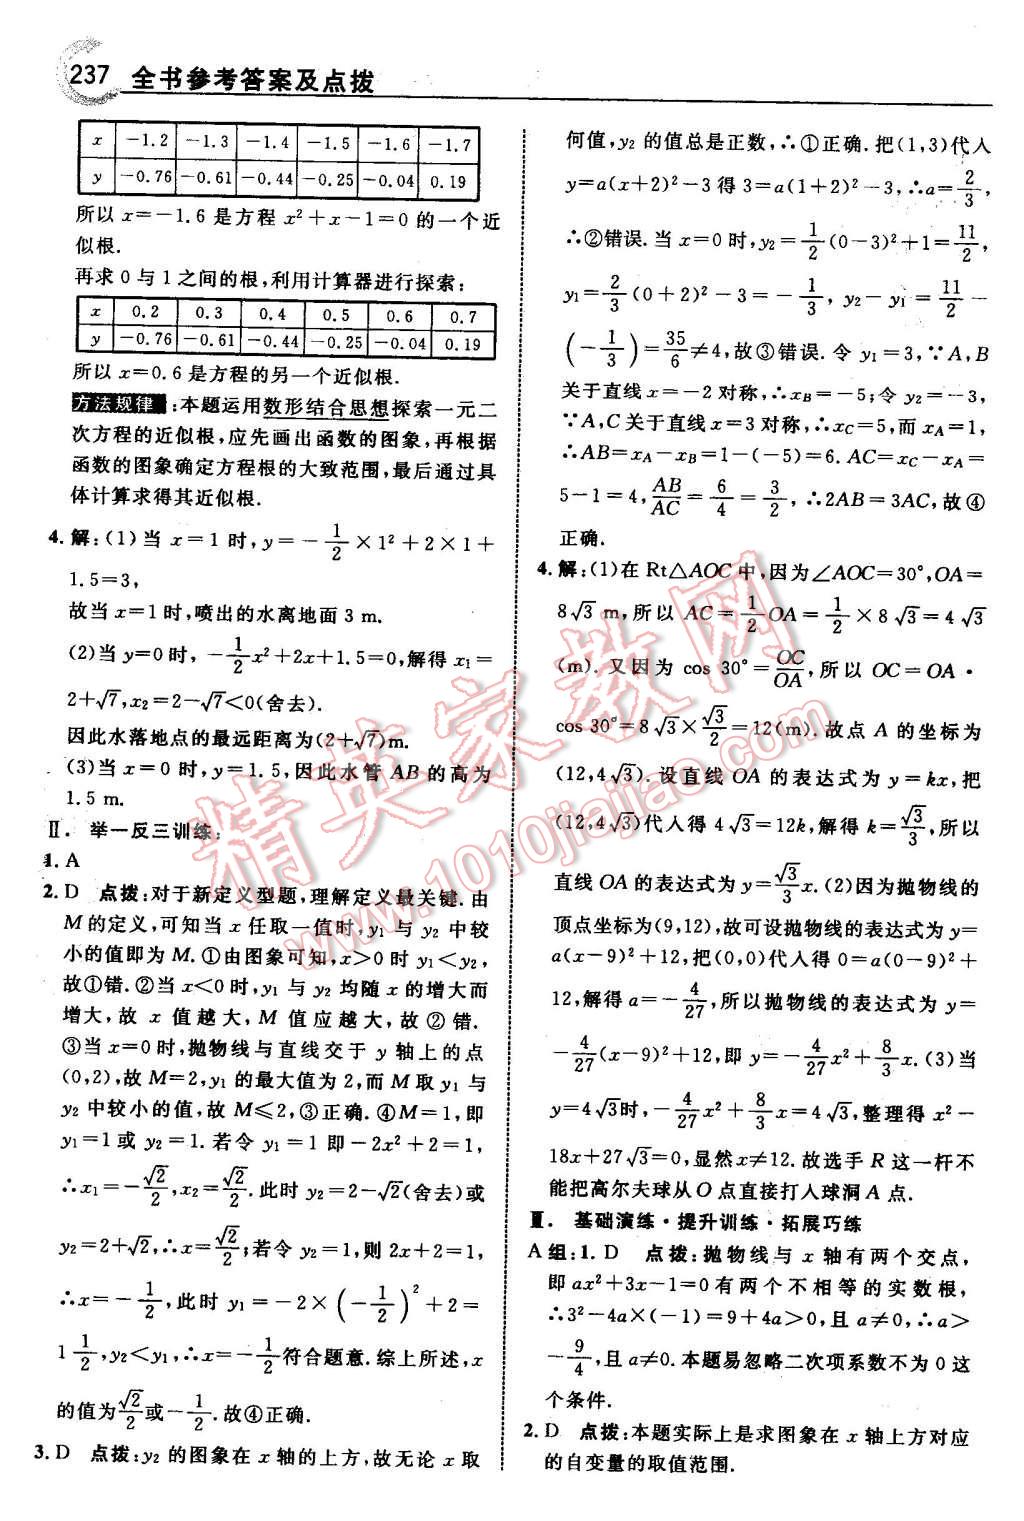 237 全书参考答案及点拨
x −1.2 −1.3 −1.4 −1.5 −1.6 −1.7
y −0.76 −0.61 −0.44 −0.25 −0.04 0.19
所以 x=−1.6 是方程 x²+x−1=0 的一个近
似根.
再求 0 与 1 之间的根,利用计算器进行探索:
x 0.2 0.3 0.4 0.5 0.6 0.7
y −0.76 −0.61 −0.44 −0.25 −0.04 0.19
所以 x=0.6 是方程的另一个近似根.
方法规律:本题运用数形结合思想探索一元二
次方程的近似根,应先画出函数的图象,再根据
函数的图象确定方程根的大致范围,最后通过具
体计算求得其近似根.
4.解:(1)当 x=1 时,y=−1/2×1²+2×1+
1.5=3,
故当 x=1 时,喷出的水离地面 3 m.
(2)当 y=0 时,−1/2x²+2x+1.5=0,解得 x₁=
2+√7,x₂=2−√7<0(舍去).
因此水落地点的最远距离为(2+√7)m.
(3)当 x=0 时,y=1.5,因此水管 AB 的高为
1.5 m.
Ⅱ. 举一反三训练:
1. A
2. D 点拨:对于新定义型题,理解定义最关键.由
M 的定义,可知当 x 任取一值时,y₁ 与 y₂ 中较
小的值即为 M.①由图象可知,x>0 时 y₁<y₂,
故①错.②当 x<0 时,y₁ 与 y₂ 均随 x 的增大而
增大,故 x 值越大,M 值应越大,故②错.
③当 x=0 时,抛物线与直线交于 y 轴上的点
(0,2),故 M=2,y₁ 的最大值为 2,而 M 取 y₁ 与
y₂ 中较小的值,故 M≤2,③正确.④M=1,即
y₁=1 或 y₂=1.若令 y₁=1 即−2x²+2=1,
∴x₁=−√2/2,x₂=√2/2.此时 y₂=2−√2(舍去)或
y₂=2+√2,∴x=√2/2;若令 y₂=1,则 2x+2=1,
∴x=−1/2,此时 y₁=−2×(−1/2)²+2=
1 1/2,y₂<y₁,∴x=−1/2符合题意.综上所述,x
的值为√2/2或−1/2.故④正确.
3. D 点拨:y₂ 的图象在 x 轴的上方,故无论 x 取
何值,y₂ 的值总是正数,∴①正确.把(1,3)代入
y=a(x+2)²−3 得 3=a(1+2)²−3,∴a=2/3,
∴②错误.当 x=0 时,y₂=1/2(0−3)²+1=11/2,
y₁=2/3(0+2)²−3=−1/3,y₂−y₁=11/2−
(−1/3)=35/6≠4,故③错误.令 y₁=3,∵A,B
关于直线 x=−2 对称,∴x_B=−5;令 y₂=−3,
∵A,C 关于直线 x=3 对称,∴x_C=5,而 x_A=1,
∴AB=x_A−x_B=1−(−5)=6.AC=x_C−x_A=
5−1=4,AB/AC=6/4=3/2,∴2AB=3AC,故④
正确.
4.解:(1)在 Rt△AOC 中,因为∠AOC=30°,OA=
8√3 m,所以 AC=1/2OA=1/2×8√3=4√3
(m).又因为 cos 30°=OC/OA,所以 OC=OA·
cos 30°=8√3×√3/2=12(m).故点 A 的坐标为
(12,4√3).设直线 OA 的表达式为 y=kx,把
(12,4√3)代入得 4√3=12k,解得 k=√3/3,所以
直线 OA 的表达式为 y=√3/3x.(2)因为抛物线的
顶点坐标为(9,12),故可设抛物线的表达式为 y=
a(x−9)²+12,把(0,0)代入得 0=a(0−9)²+
12,解得 a=−4/27,所以抛物线的表达式为 y=
−4/27(x−9)²+12,即 y=−4/27x²+8/3x.(3)当
y=4√3时,−4/27x²+8/3x=4√3,整理得 x²−
18x+27√3=0,显然x≠12.故选手 R 这一杆不
能把高尔夫球从 O 点直接打入球洞 A 点.
Ⅲ. 基础演练·提升训练·拓展巧练
A 组:1. D 点拨:抛物线与 x 轴有两个交点,
即 ax²+3x−1=0 有两个不相等的实数根,
∴3²−4a×(−1)=9+4a>0,且 a≠0,∴a>
−9/4,且 a≠0.本题易忽略二次项系数不为 0 这
个条件.
2. D 点拨:本题实际上是求图象在 x 轴上方对应
的自变量的取值范围.
精英家教网
www.1010jiajiao.com